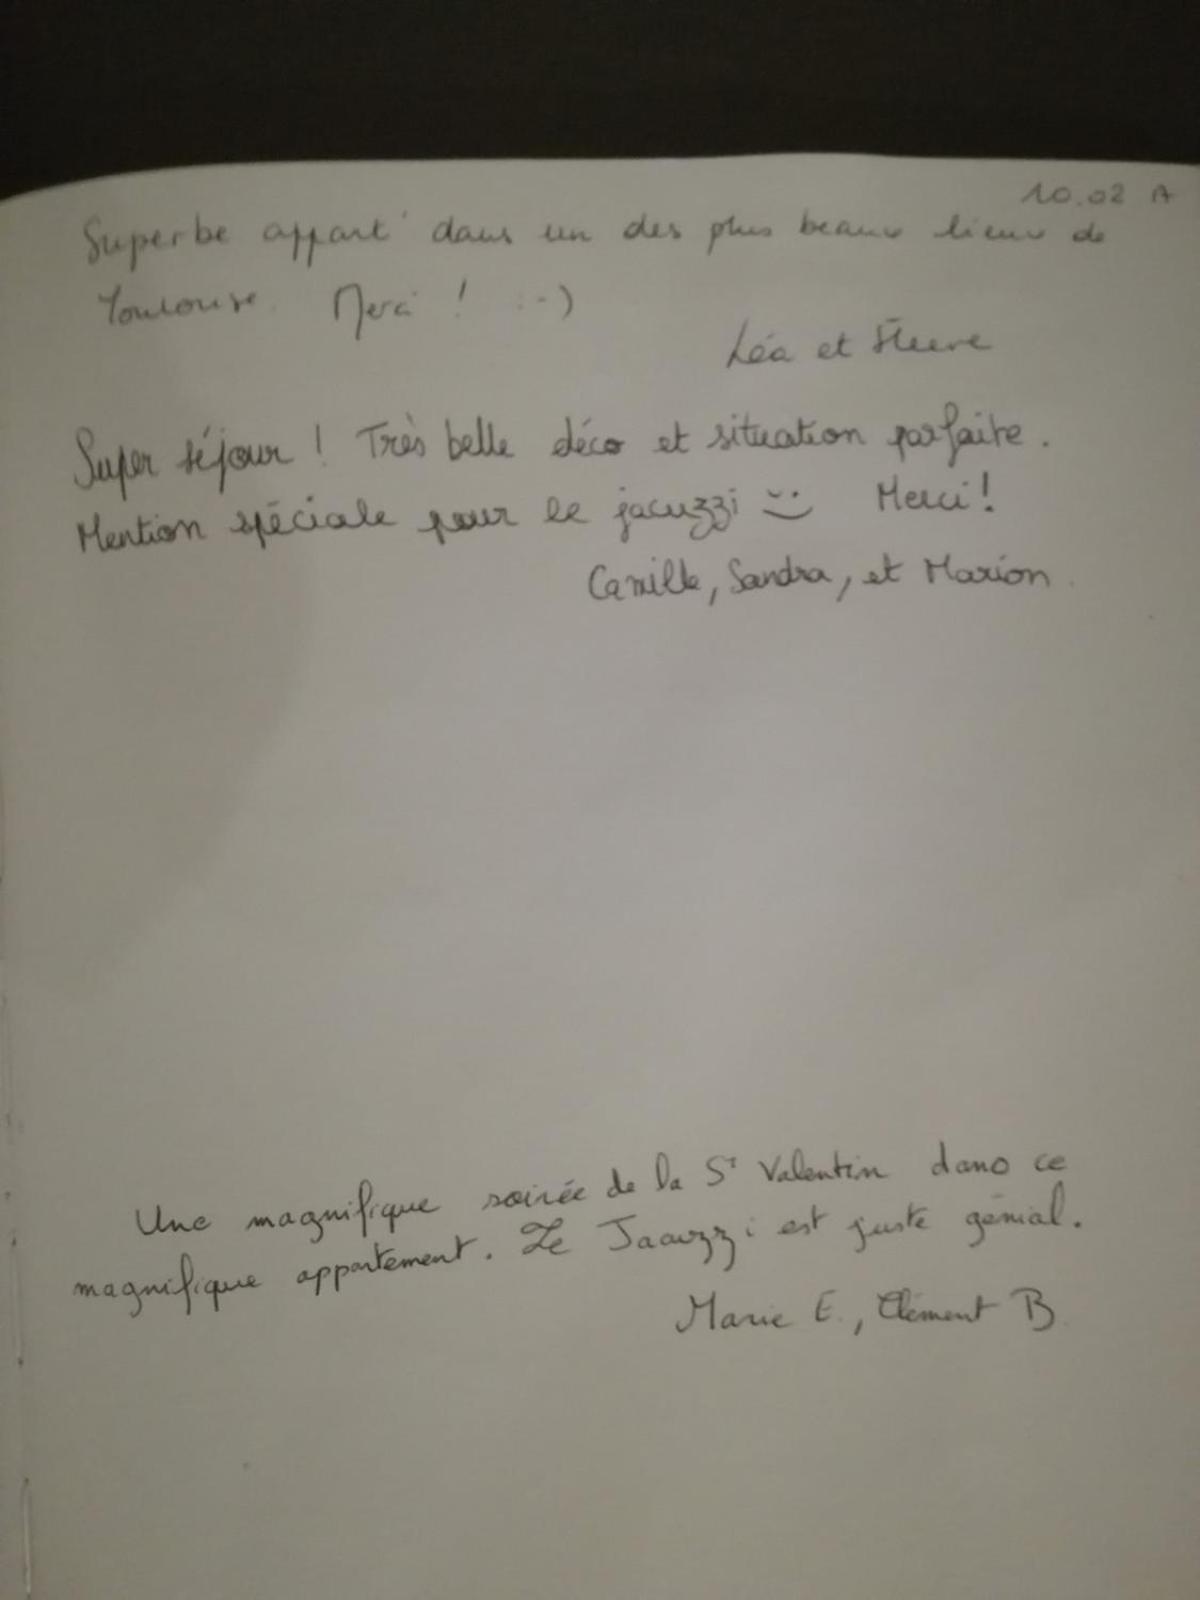 10.02
Superbe appart' dans un des plus beaux lieux de
Toulouse. Merci ! :-)
Léa et
Super séjour ! Très belle déco et situation parfaite.
Mention spéciale pour le jacuzzi Merci !
Camille, Sandra, et Marion.
Une magnifique soirée de la St Valentin dans ce
magnifique appartement. Le Jacuzzi est juste génial.
Marie E., Clément B.